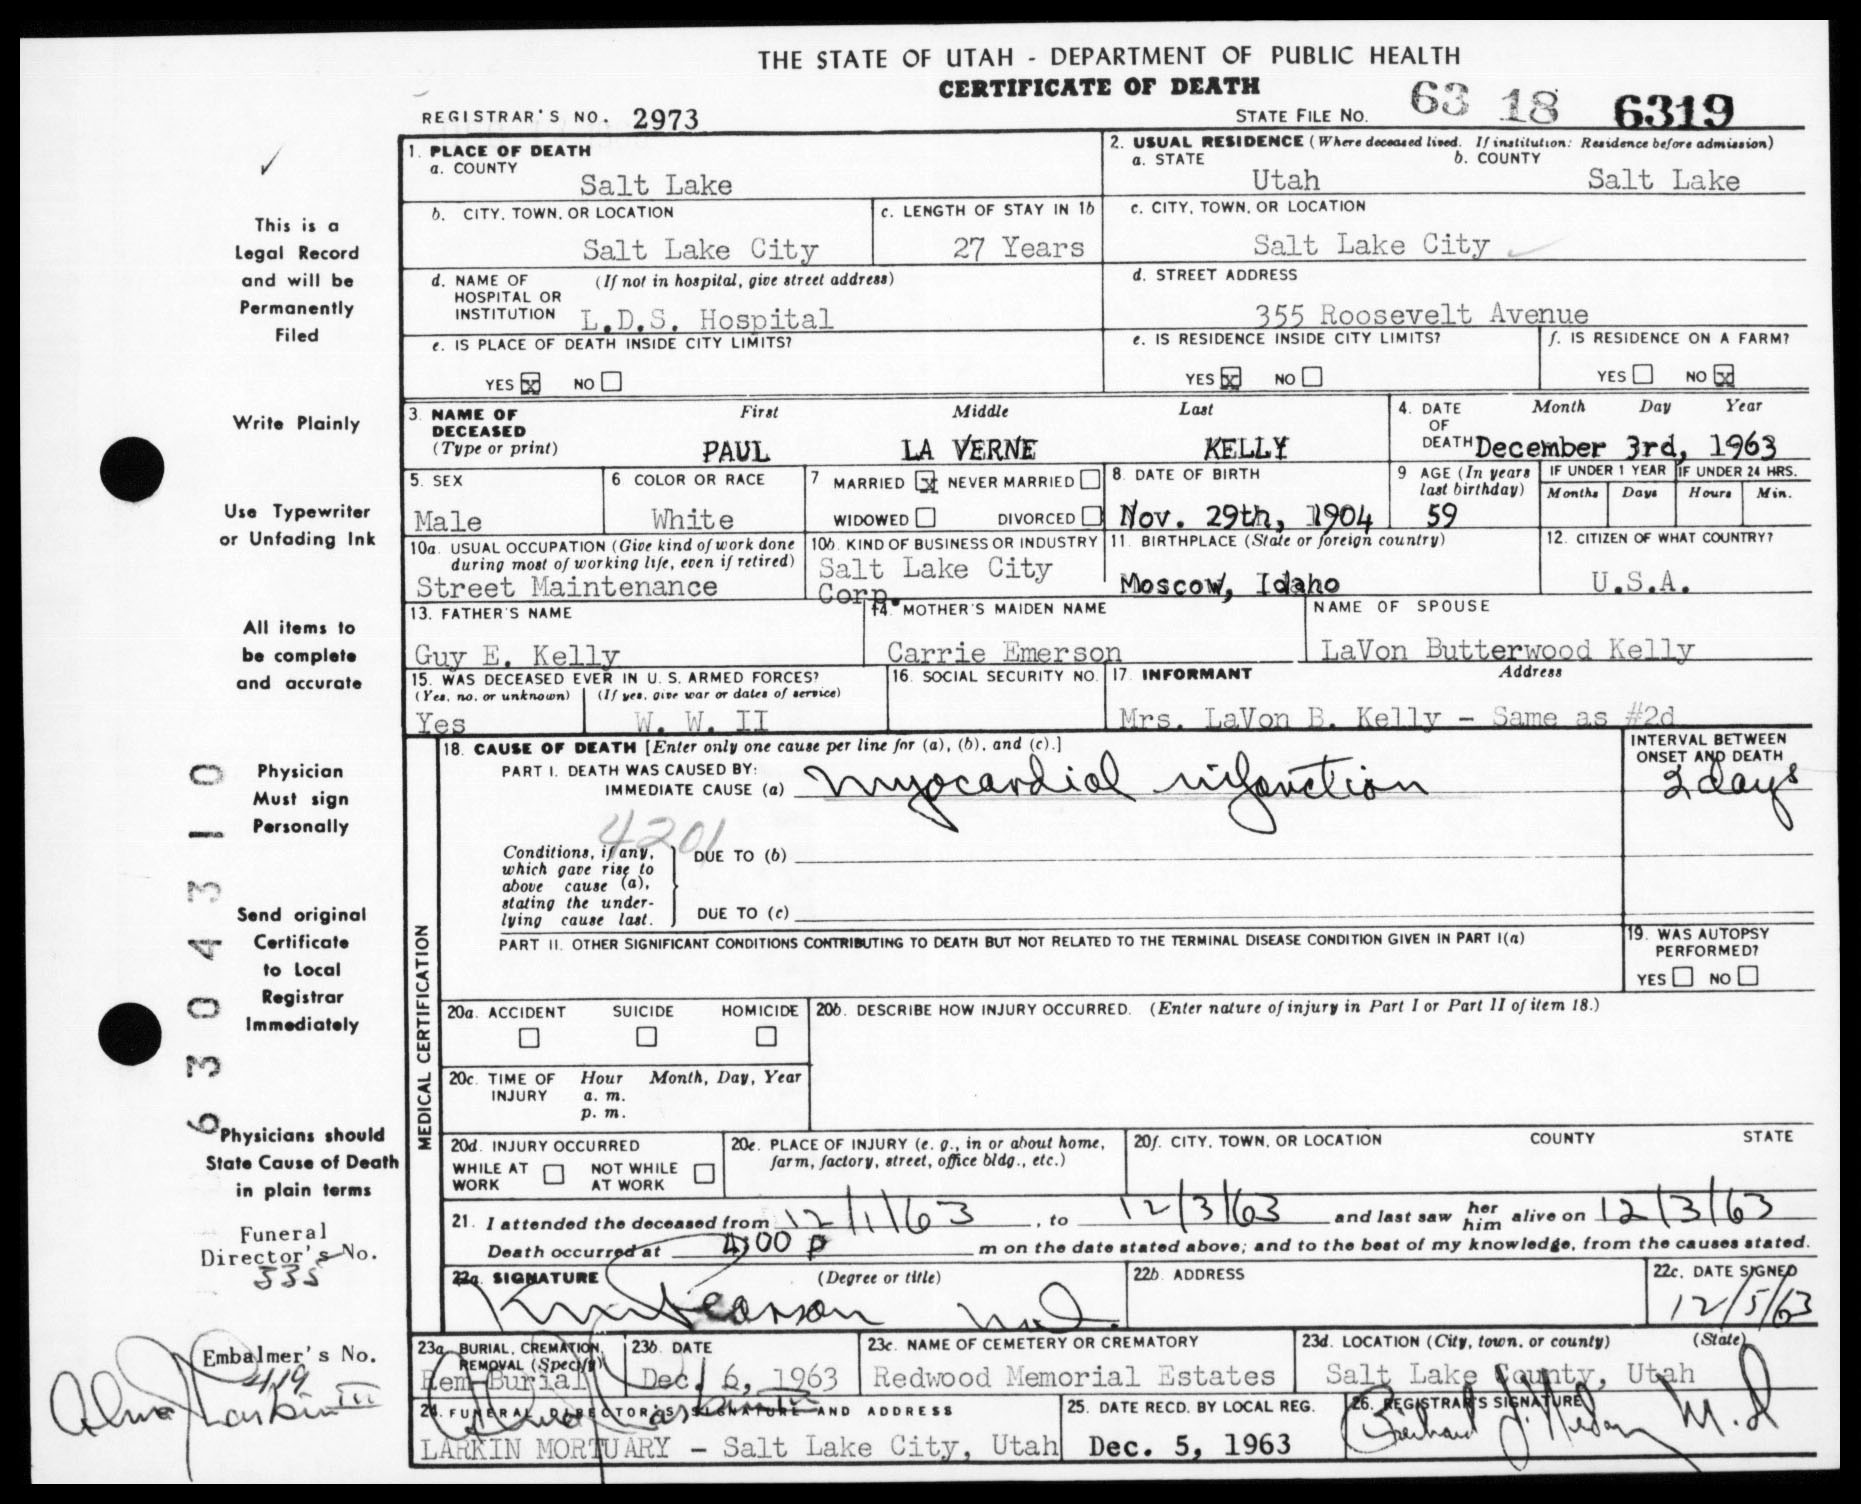 THE STATE OF UTAH - DEPARTMENT OF PUBLIC HEALTH
CERTIFICATE OF DEATH
REGISTRAR'S NO. 2973
STATE FILE NO. 63 18 6319
1. PLACE OF DEATH
a. COUNTY
Salt Lake
2. USUAL RESIDENCE (Where deceased lived. If institution: Residence before admission)
a. STATE b. COUNTY
Utah Salt Lake
b. CITY, TOWN, OR LOCATION
Salt Lake City
c. LENGTH OF STAY IN 1b
27 Years
c. CITY, TOWN, OR LOCATION
Salt Lake City
d. NAME OF HOSPITAL OR INSTITUTION (If not in hospital, give street address)
L.D.S. Hospital
d. STREET ADDRESS
355 Roosevelt Avenue
e. IS PLACE OF DEATH INSIDE CITY LIMITS?
YES x NO
e. IS RESIDENCE INSIDE CITY LIMITS?
YES x NO
f. IS RESIDENCE ON A FARM?
YES NO x
3. NAME OF DECEASED (Type or print)
First Middle Last
PAUL LA VERNE KELLY
4. DATE OF DEATH Month Day Year
December 3rd, 1963
5. SEX
Male
6. COLOR OR RACE
White
7 MARRIED x NEVER MARRIED
WIDOWED DIVORCED
8. DATE OF BIRTH
Nov. 29th, 1904
9 AGE (In years last birthday)
59
IF UNDER 1 YEAR IF UNDER 24 HRS.
Months Days Hours Min.
10a. USUAL OCCUPATION (Give kind of work done during most of working life, even if retired)
Street Maintenance
10b. KIND OF BUSINESS OR INDUSTRY
Salt Lake City
Corp.
11. BIRTHPLACE (State or foreign country)
Moscow, Idaho
12. CITIZEN OF WHAT COUNTRY?
U.S.A.
13. FATHER'S NAME
Guy E. Kelly
14. MOTHER'S MAIDEN NAME
Carrie Emerson
NAME OF SPOUSE
LaVon Butterwood Kelly
15. WAS DECEASED EVER IN U. S. ARMED FORCES?
(Yes, no, or unknown) (If yes, give war or dates of service)
Yes W. W. II
16. SOCIAL SECURITY NO.
17. INFORMANT Address
Mrs. LaVon B. Kelly - Same as #2d
MEDICAL CERTIFICATION
18. CAUSE OF DEATH [Enter only one cause per line for (a), (b), and (c).]
PART I. DEATH WAS CAUSED BY:
IMMEDIATE CAUSE (a) myocardial infarction
INTERVAL BETWEEN ONSET AND DEATH
2 days
4201
Conditions, if any, which gave rise to above cause (a), stating the underlying cause last.
DUE TO (b)
DUE TO (c)
PART II. OTHER SIGNIFICANT CONDITIONS CONTRIBUTING TO DEATH BUT NOT RELATED TO THE TERMINAL DISEASE CONDITION GIVEN IN PART I(a)
19. WAS AUTOPSY PERFORMED?
YES NO
20a. ACCIDENT SUICIDE HOMICIDE
20b. DESCRIBE HOW INJURY OCCURRED. (Enter nature of injury in Part I or Part II of item 18.)
20c. TIME OF INJURY Hour Month, Day, Year
a. m.
p. m.
20d. INJURY OCCURRED
WHILE AT WORK NOT WHILE AT WORK
20e. PLACE OF INJURY (e. g., in or about home, farm, factory, street, office bldg., etc.)
20f. CITY, TOWN, OR LOCATION COUNTY STATE
21. I attended the deceased from 12/1/63, to 12/3/63 and last saw her him alive on 12/3/63
Death occurred at 4:00 p m on the date stated above; and to the best of my knowledge, from the causes stated.
22a. SIGNATURE (Degree or title)
Pearson M.D.
22b. ADDRESS
22c. DATE SIGNED
12/5/63
23a. BURIAL, CREMATION, REMOVAL (Specify)
Rem-Burial
23b. DATE
Dec. 6, 1963
23c. NAME OF CEMETERY OR CREMATORY
Redwood Memorial Estates
23d. LOCATION (City, town, or county) (State)
Salt Lake County, Utah
24. FUNERAL DIRECTOR'S SIGNATURE AND ADDRESS
LARKIN MORTUARY - Salt Lake City, Utah
25. DATE RECD. BY LOCAL REG.
Dec. 5, 1963
26. REGISTRAR'S SIGNATURE
M.D
This is a
Legal Record
and will be
Permanently
Filed
Write Plainly
Use Typewriter
or Unfading Ink
All items to
be complete
and accurate
Physician
Must sign
Personally
Send original
Certificate
to Local
Registrar
Immediately
Physicians should
State Cause of Death
in plain terms
Funeral
Director's No.
335
Embalmer's No.
419
Alma Larkin III
6304310